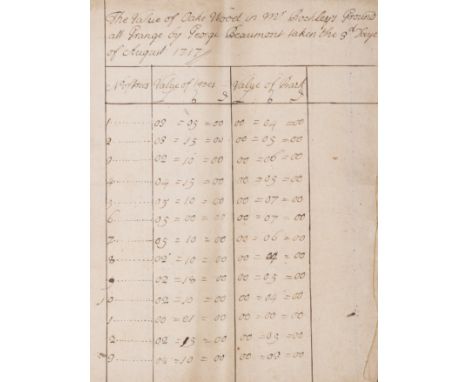 The Value of Oake Wood in Mr Rockley's Ground
att Grange by George Beaumont taken the 3d Daye
of August 1717
No Trees Value of trees Value of Bark
1 03 = 05 = 00 00 = 04 = 00
2 03 = 15 = 00 00 = 05 = 00
3 02 = 10 = 00 00 = 06 = 00
4 04 = 15 = 00 00 = 05 = 00
5 05 = 10 = 00 00 = 07 = 00
6 05 = 00 = 00 00 = 07 = 00
7 05 = 10 = 00 00 = 06 = 00
8 02 = 10 = 00 00 = 04 = 00
02 = 18 = 00 00 = 05 = 00
10 02 = 10 = 00 00 = 04 = 00
1 00 = 01 = 00 00 = 00 = 00
2 02 = 15 = 00 00 = 03 = 00
3 04 = 10 = 00 00 = 08 = 00